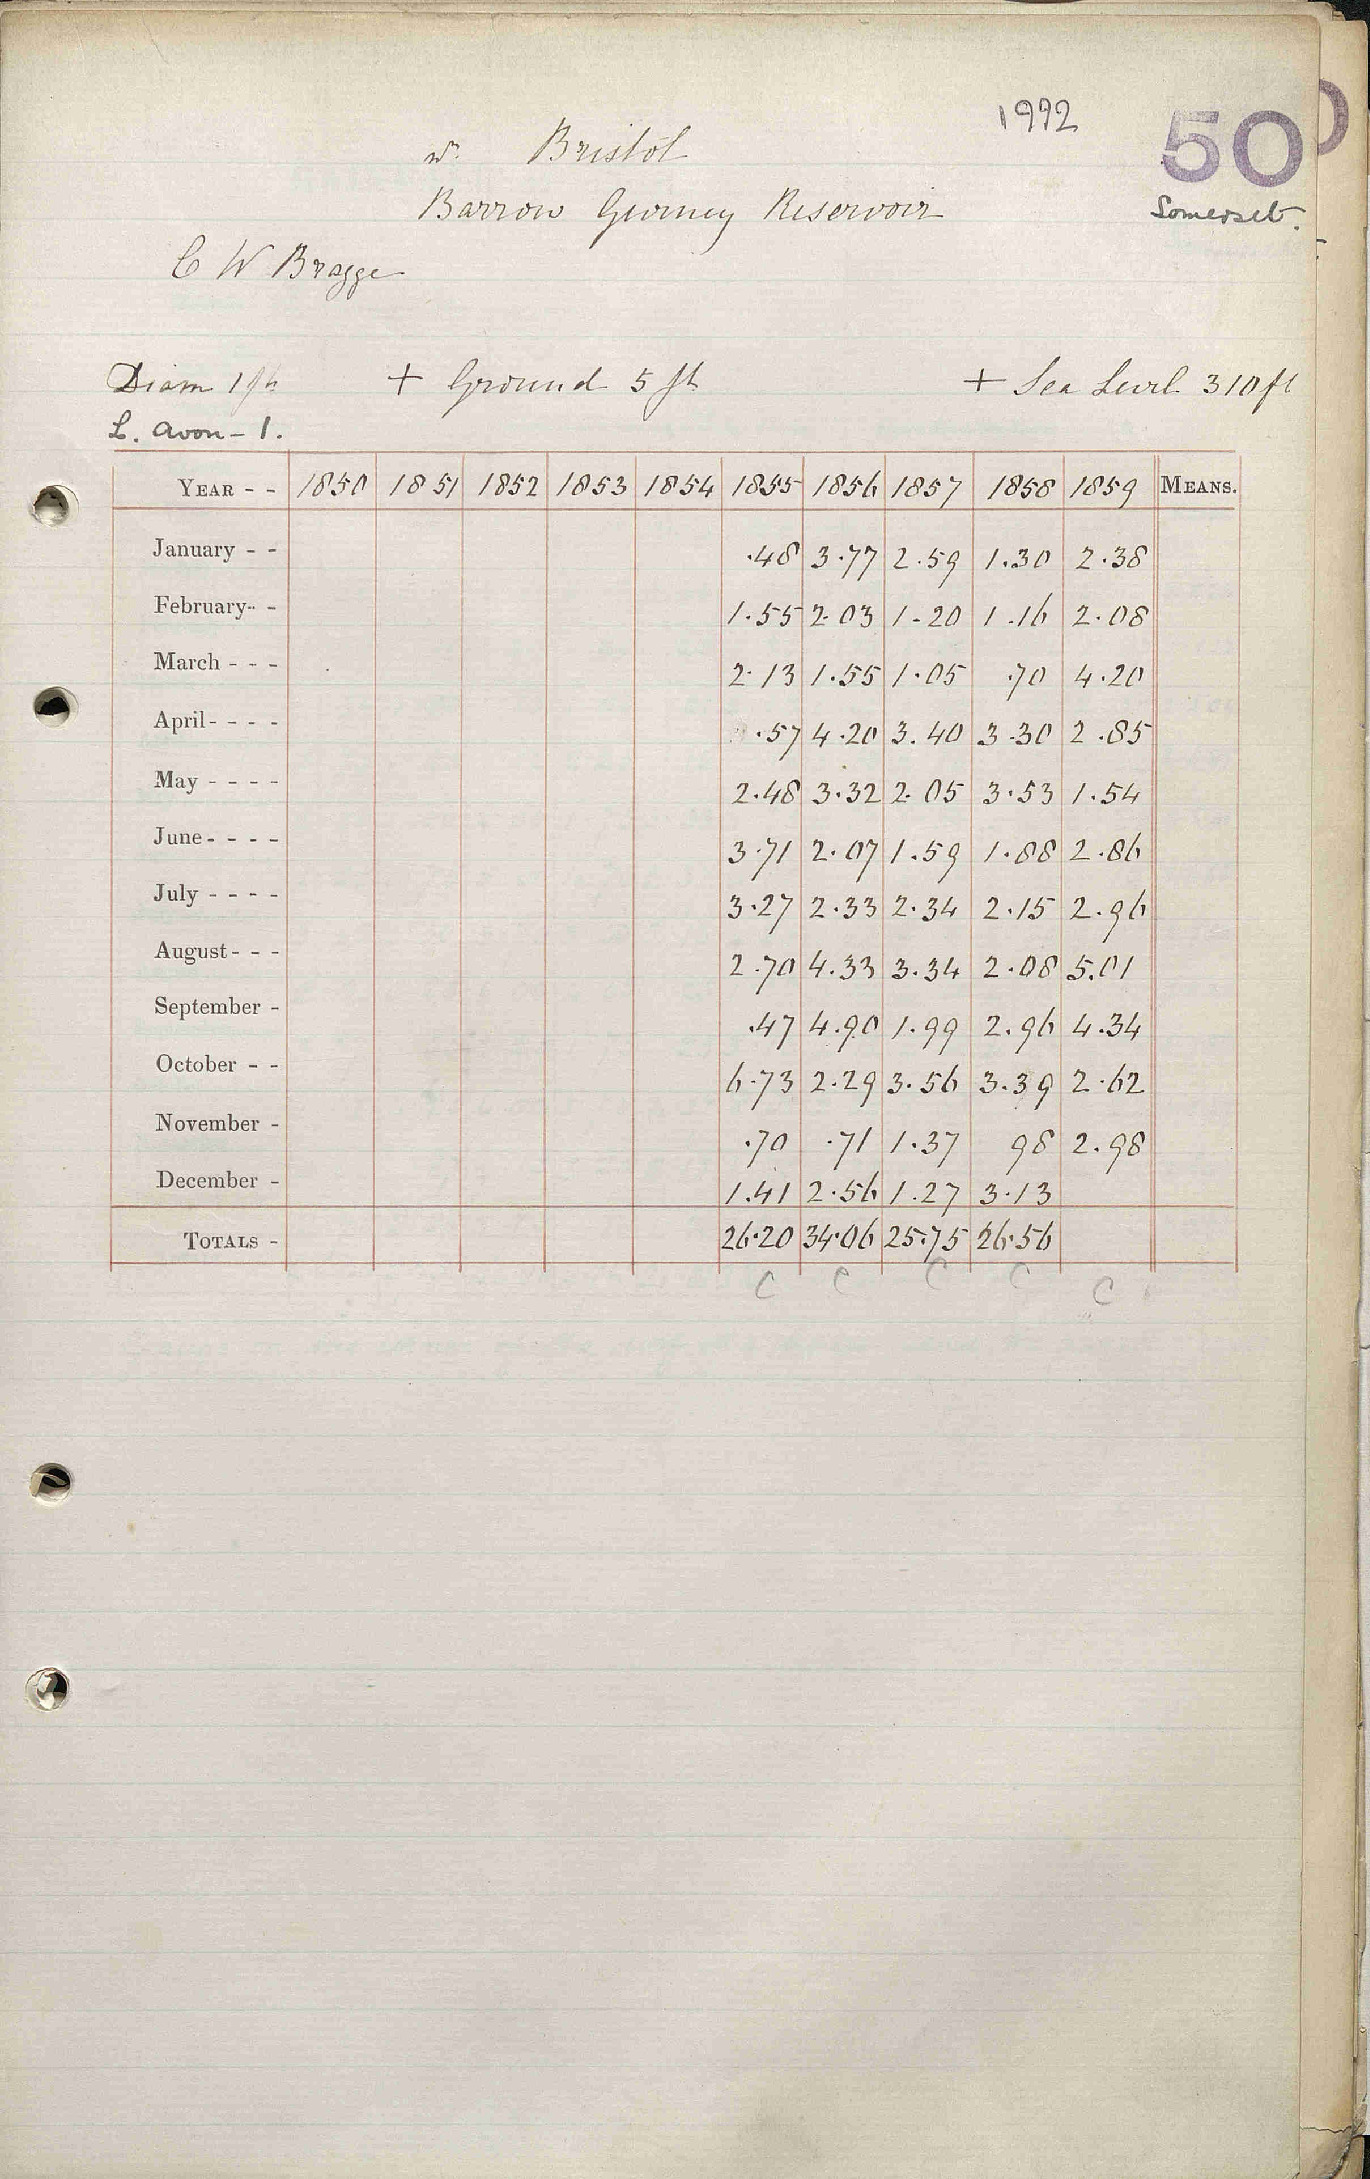 1992
50
nr. Bristol
Somerset.
Barrow Gurney Reservoir
C W Bragge
Diam 1 ft + Ground 5 ft + Sea Level 310 ft
L. Avon - 1.
YEAR - - 1850 1851 1852 1853 1854 1855 1856 1857 1858 1859 MEANS.
January - - .48 3.77 2.59 1.30 2.38
February - - 1.55 2.03 1.20 1.16 2.08
March - - - 2.13 1.55 1.05 .70 4.20
April - - - - .57 4.20 3.40 3.30 2.85
May - - - - 2.48 3.32 2.05 3.53 1.54
June - - - - 3.71 2.07 1.59 1.88 2.86
July - - - - 3.27 2.33 2.34 2.15 2.96
August - - - 2.70 4.33 3.34 2.08 5.01
September - .47 4.90 1.99 2.96 4.34
October - - 6.73 2.29 3.56 3.39 2.62
November - .70 .71 1.37 98 2.98
December - 1.41 2.56 1.27 3.13
TOTALS - 26.20 34.06 25.75 26.56
C C C C C